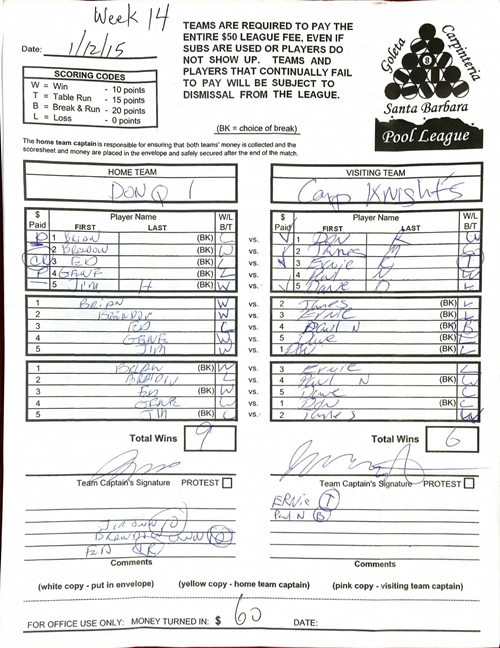 Week 14
Date: 1/12/15
TEAMS ARE REQUIRED TO PAY THE
ENTIRE $50 LEAGUE FEE, EVEN IF
SUBS ARE USED OR PLAYERS DO
NOT SHOW UP. TEAMS AND
PLAYERS THAT CONTINUALLY FAIL
TO PAY WILL BE SUBJECT TO
DISMISSAL FROM THE LEAGUE.
SCORING CODES
W = Win - 10 points
T = Table Run - 15 points
B = Break & Run - 20 points
L = Loss - 0 points
Goleta
Carpinteria
8
Santa Barbara
Pool League
(BK = choice of break)
The home team captain is responsible for ensuring that both teams' money is collected and the
scoresheet and money are placed in the envelope and safely secured after the end of the match.
HOME TEAM VISITING TEAM
DON Q 1 Carp Knights
$ Paid Player Name W/L B/T $ Paid Player Name W/L B/T
FIRST LAST FIRST LAST
1 Brian (BK) L vs. 1 Don K W
2 Brendon (BK) W vs. 2 James L
3 ED (BK) L vs. 3 Ernie T
4 GENE (BK) L vs. 4 Paul N W
5 Jim H (BK) W vs. 5 Dave L
1 Brian W vs. 2 James (BK) L
2 Brendon W vs. 3 Ernie (BK) L
3 ED L vs. 4 Paul N (BK) B
4 GENE W vs. 5 Dave (BK) L
5 Jim W vs. 1 (BK) L
1 Brian (BK) W vs. 3 Ernie L
2 (BK) L vs. 4 Paul N W
3 ED (BK) W vs. 5 Dave L
4 GENE (BK) vs. 1 Don
5 Jim (BK) L vs. 2 James W
Total Wins 9 Total Wins 6
Team Captain's Signature PROTEST Team Captain's Signature PROTEST
ERNIE T
Paul N B
Comments Comments
(white copy - put in envelope) (yellow copy - home team captain) (pink copy - visiting team captain)
FOR OFFICE USE ONLY: MONEY TURNED IN: $ 60 DATE: